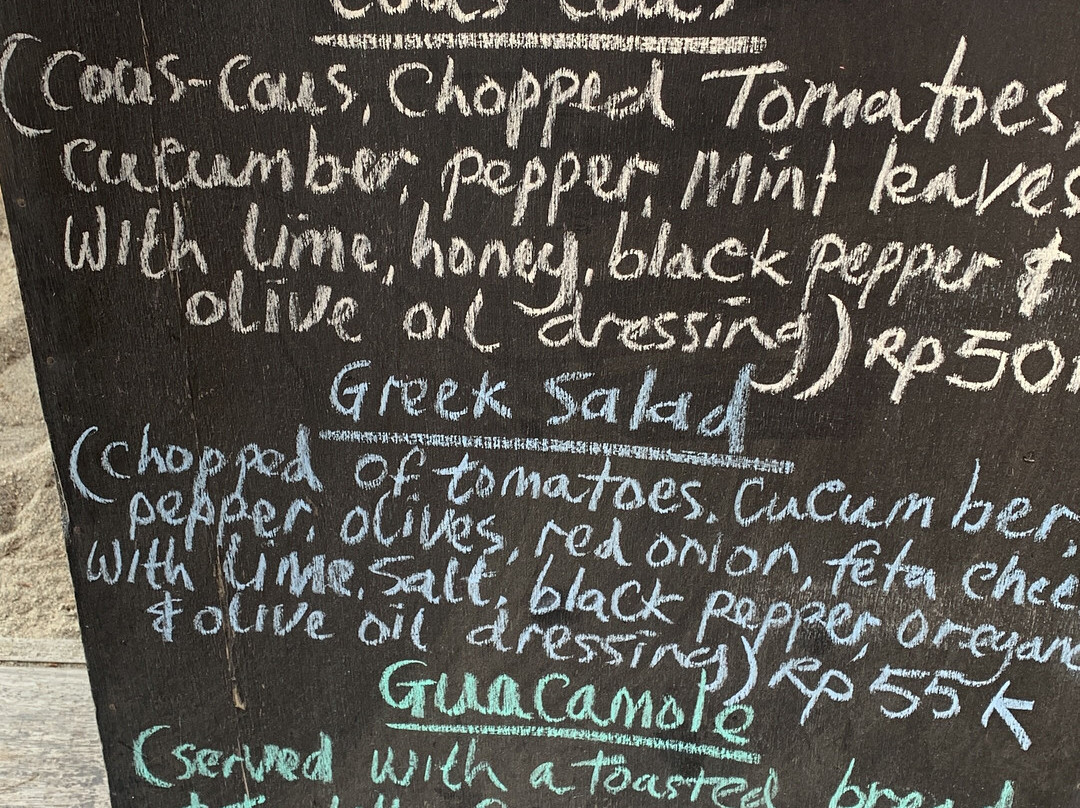 Cous Cous
(Cous-Cous, Chopped Tomatoes,
cucumber, pepper, Mint leaves
With lime, honey, black pepper &
olive oil dressing) Rp 50
Greek Salad
(Chopped of tomatoes, Cucumber,
pepper, olives, red onion, feta chee
With lime, Salt, black pepper, oregano
& olive oil dressing) Rp 55 K
Guacamole
(served with a toasted bread